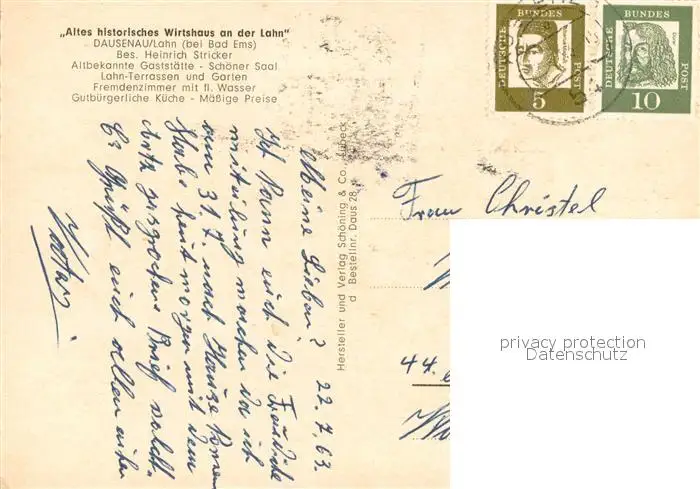 „Altes historisches Wirtshaus an der Lahn"
DAUSENAU/Lahn (bei Bad Ems)
Bes. Heinrich Stricker
Altbekannte Gaststätte - Schöner Saal
Lahn-Terrassen und Garten
Fremdenzimmer mit fl. Wasser
Gutbürgerliche Küche - Mäßige Preise
DEUTSCHE
BUNDES
POST
5
DEUTSCHE
BUNDES
POST
10
Meine Lieben! 22.7.63.
Ich kann euch die Freudide
mitteilung machen da ich
am 31.7. nach Hause komme
Habe heut morgen mit dem
Artz gesprochen Brief
Es Grüßt euch allen
Hersteller und Verlag Schöning & Co., Lübeck
d Bestellnr. Daus 28
Frau Christel
44.
privacy protection
Datenschutz